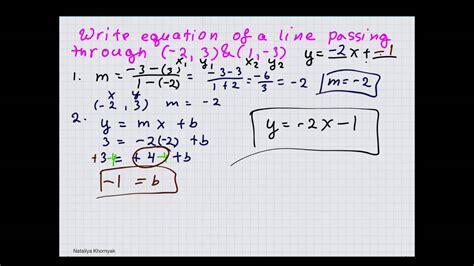 Write equation of a line passing
through (-2, 3) & (1, -3) y = -2x + -1
x₁ y₁ x₂ y₂
1. m = (-3 - (3))/(1 - (-2)) = (-3-3)/(1+2) = -6/3 = -2 m = -2
x y
(-2, 3) m = -2
2. y = mx + b
y = -2x - 1
3 = -2(-2) + b
+3-4 = +4-4 + b
-1 = b
Nataliya Khomyak